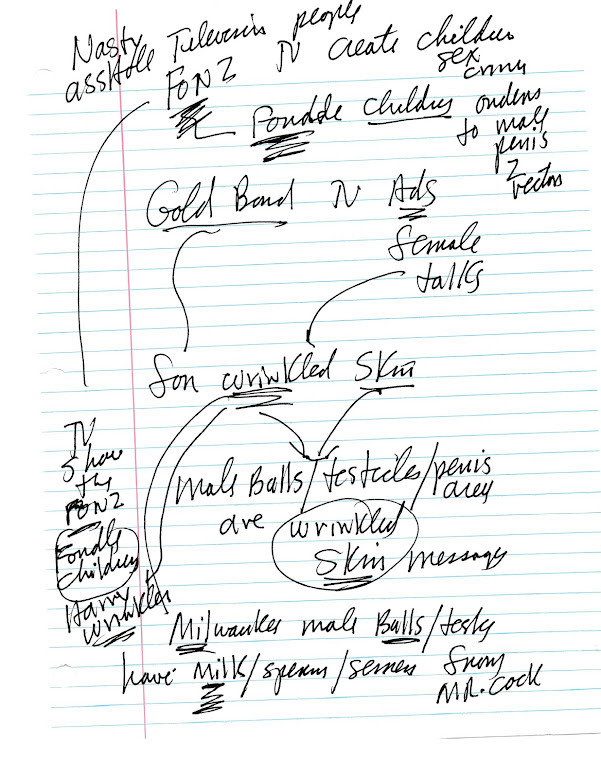 Nasty asshole Television people
FONZ TV create children
sex crimes
Fondle children orders
to male
penis
2
vectors
Gold Bond TV Ads
female
talks
for wrinkled Skin
TV
Show
the
FONZ
Fondle
children
Harry
wrinkles
male Balls/testicles/penis
area
are wrinkled
Skin message
Milwaukee male Balls/tests
have Milk/sperm/semen from
MR. Cock